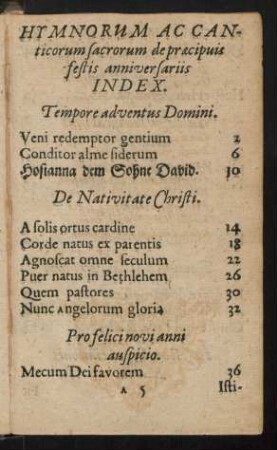 HYMNORUM AC CAN-
ticorum sacrorum de præcipuis
festis anniversariis
INDEX.
Tempore adventus Domini.
Veni redemptor gentium 2
Conditor alme siderum 6
Hosianna dem Sohne David. 10
De Nativitate Christi.
A solis ortus cardine 14
Corde natus ex parentis 18
Agnoscat omne seculum 22
Puer natus in Bethlehem 26
Quem pastores 30
Nunc angelorum gloria 32
Pro felici novi anni
auspicio.
Mecum Dei favorem 36
A 5 Isti-